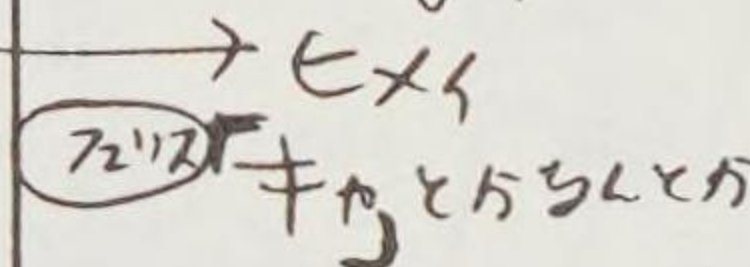 →ヒメイ
フェリス「キャーとからんとか